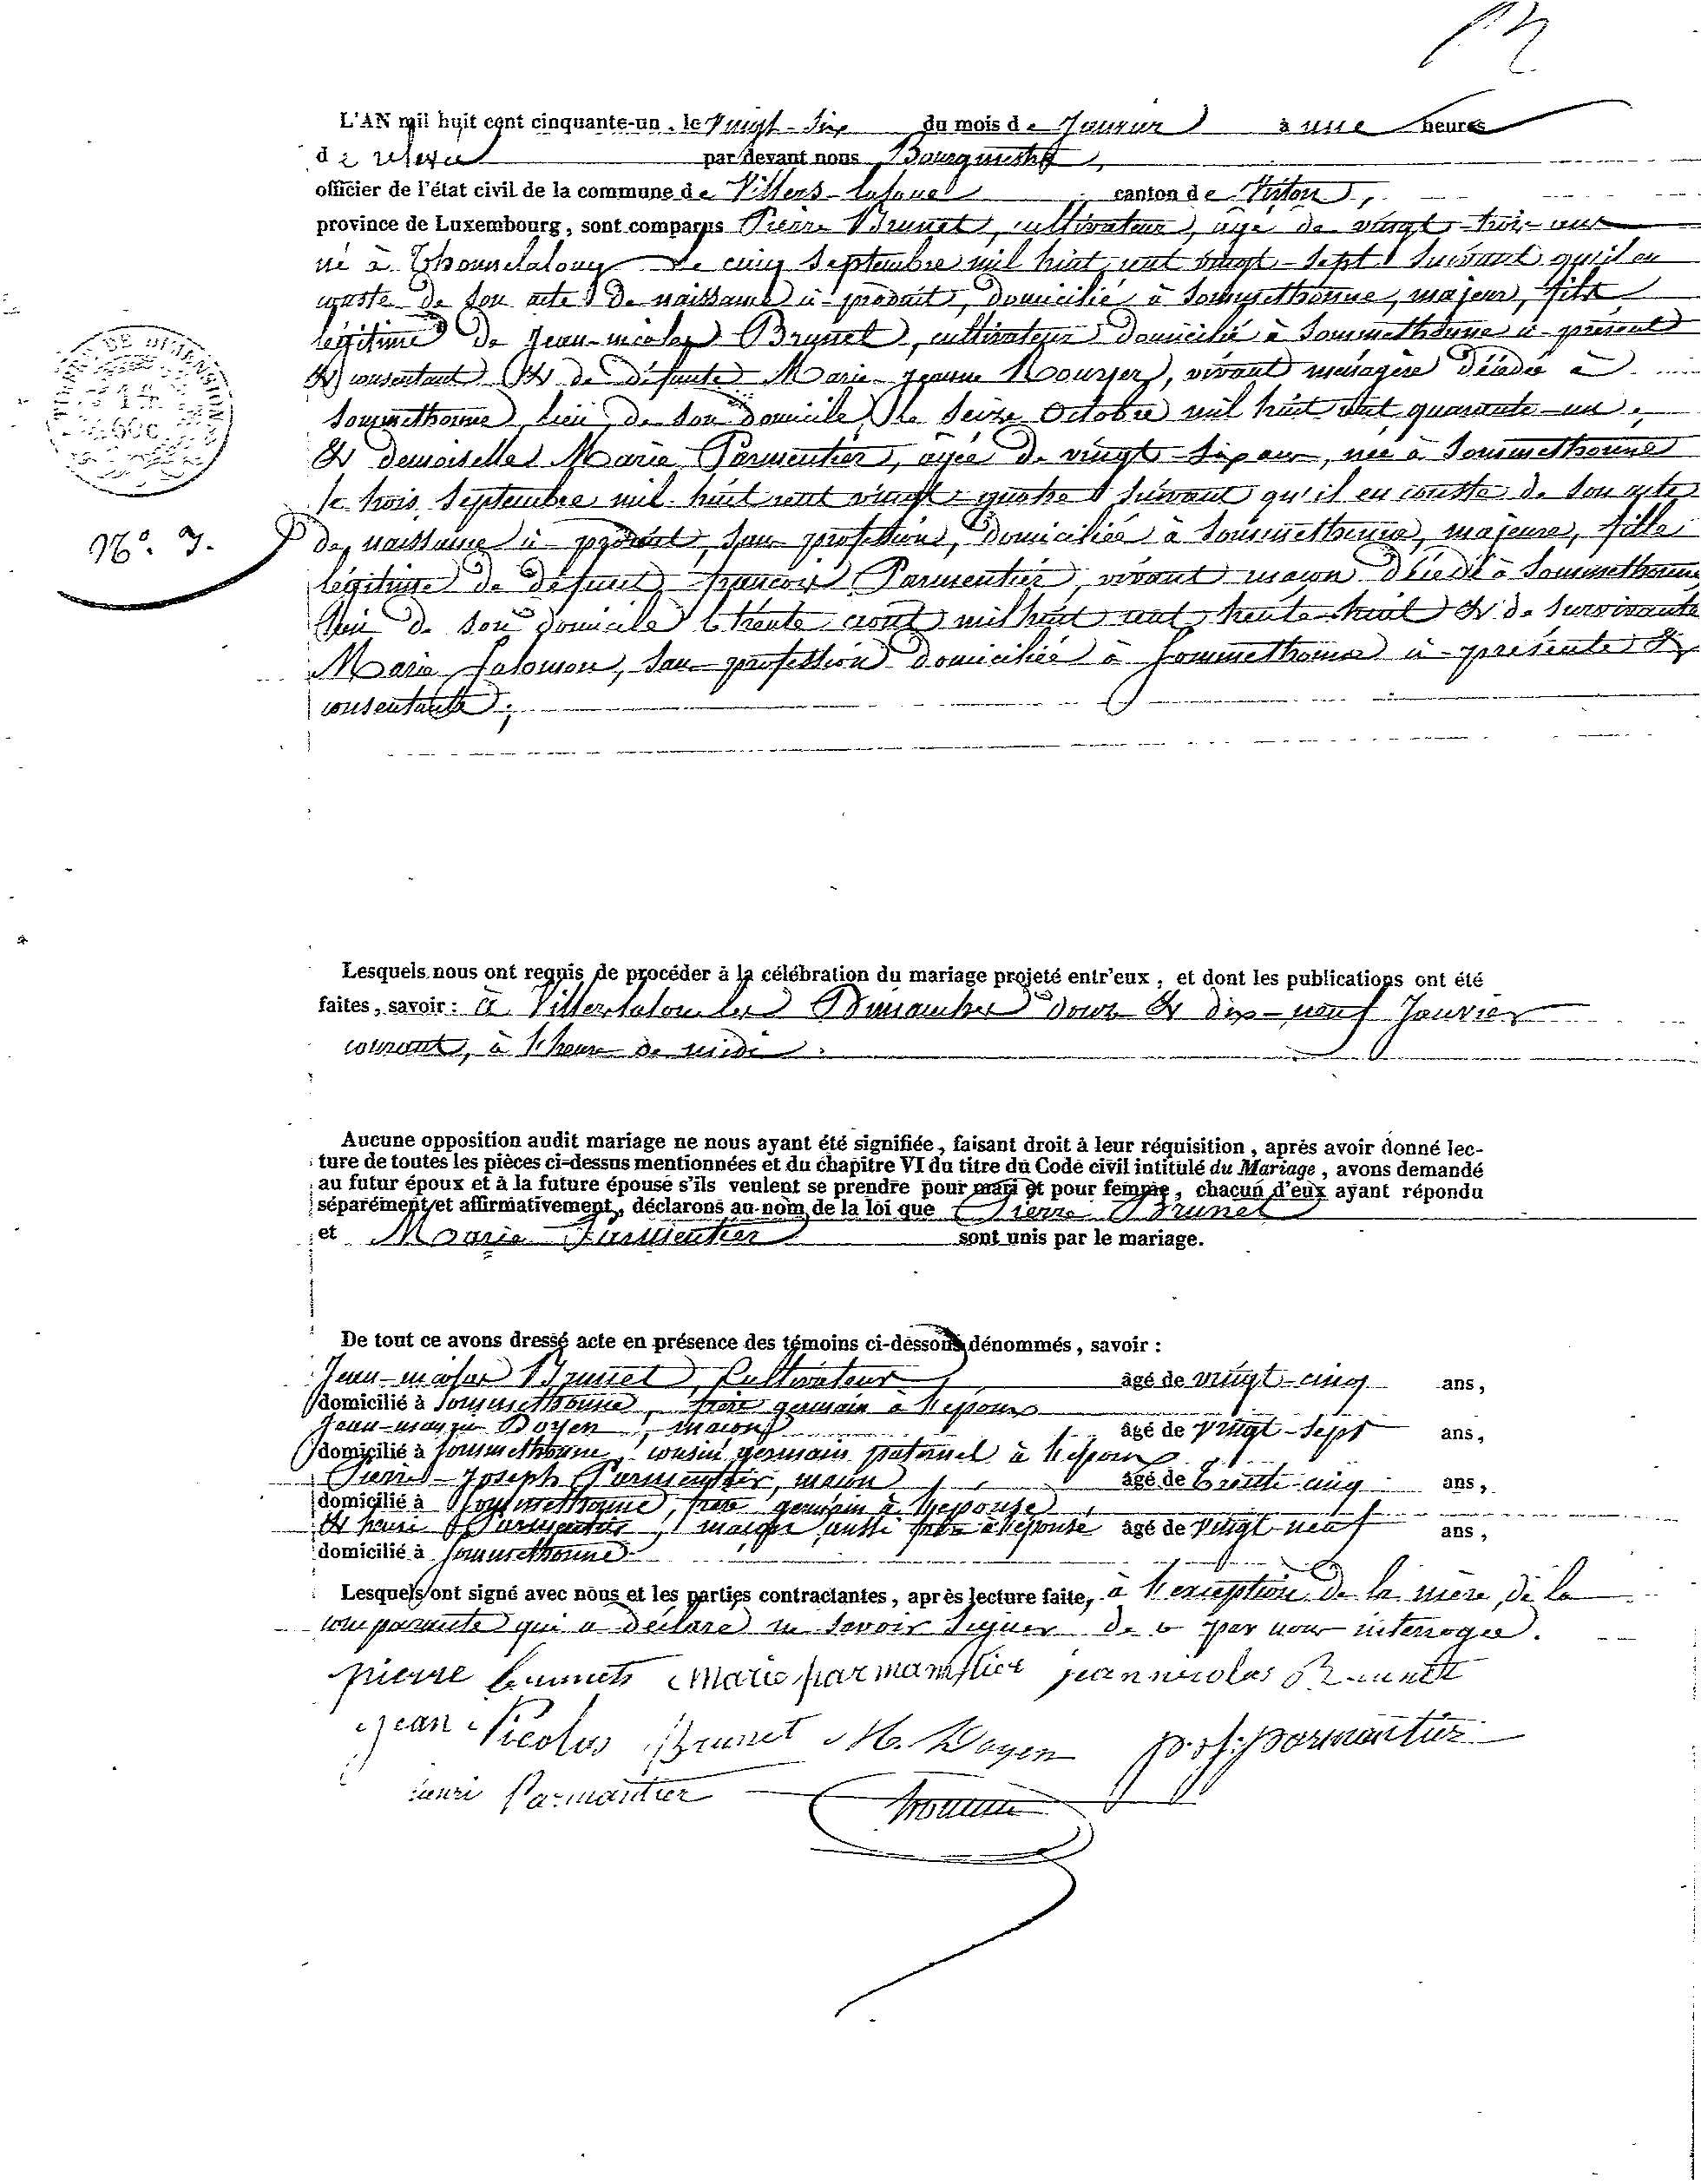 L'AN mil huit cent cinquante-un, le Vingt-six du mois de Janvier à une heures
de relevée par devant nous Bourgmestre,
officier de l'état civil de la commune de Villers-laloue canton de Virton,
province de Luxembourg, sont comparus Pierre Brunet, cultivateur, agé de vingt-trois ans
né à Thonnelalong le cinq Septembre mil huit cent vingt-sept suivant qu'il en
conste de son acte de naissance ci-produit, domicilié à Sommethonne, majeur, fils
légitime de Jean-nicolas Brunet, cultivateur domicilié à Sommethonne ci-présent
& consentant & de défunte Marie-Jeanne, vivant ménagère décédée à
Sommethonne, lieu de son domicile, le seize Octobre mil huit cent quarante-un,
& demoiselle Marie Parmentier, agée de vingt-six ans, née à Sommethonne
le trois Septembre mil huit cent vingt-quatre suivant qu'il en conste de son acte
N°. 7.
de naissance ci-produit, sans profession, domiciliée à Sommethonne, majeure, fille
légitime de défunt françois Parmentier, vivant maçon décédé à Sommethonne
lieu de son domicile le trente août mil huit cent trente-huit & de survivante
Marie Salomon, sans profession domiciliée à Sommethonne ci-présente &
consentante;
Lesquels nous ont requis de procéder à la célébration du mariage projeté entr'eux, et dont les publications ont été
faites, savoir : à Villerslaloue les Dimanches douze & dix-neuf Janvier
courant, à l'heure de midi.
Aucune opposition audit mariage ne nous ayant été signifiée, faisant droit à leur réquisition, après avoir donné lec-
ture de toutes les pièces ci-dessus mentionnées et du chapitre VI du titre du Code civil intitulé du Mariage, avons demandé
au futur époux et à la future épouse s'ils veulent se prendre pour mari et pour femme, chacun d'eux ayant répondu
séparément et affirmativement, déclarons au nom de la loi que Pierre Brunet
et Marie Parmentier sont unis par le mariage.
De tout ce avons dressé acte en présence des témoins ci-dessous dénommés, savoir :
Jean-nicolas Brunet, Cultivateur âgé de vingt-cinq ans,
domicilié à Sommethonne, frère germain à l'époux
Jean- Doyen, maçon âgé de vingt-sept ans,
domicilié à Sommethonne, cousin germain paternel à l'époux
Pierre-Joseph Parmentier, maçon âgé de trente-cinq ans,
domicilié à Sommethonne, frère germain à l'épouse
& henri Parmentier, maçon aussi frère à l'épouse âgé de vingt-neuf ans,
domicilié à Sommethonne
Lesquels ont signé avec nous et les parties contractantes, après lecture faite, à l'exception de la mère de la
comparante qui a déclaré ne savoir signer de ce par nous interrogée.
pierre brunets marie parmantier jean nicolas Brunett
jean Nicolas Brunet M. Doyen p. j. parmantier
henri Parmantier